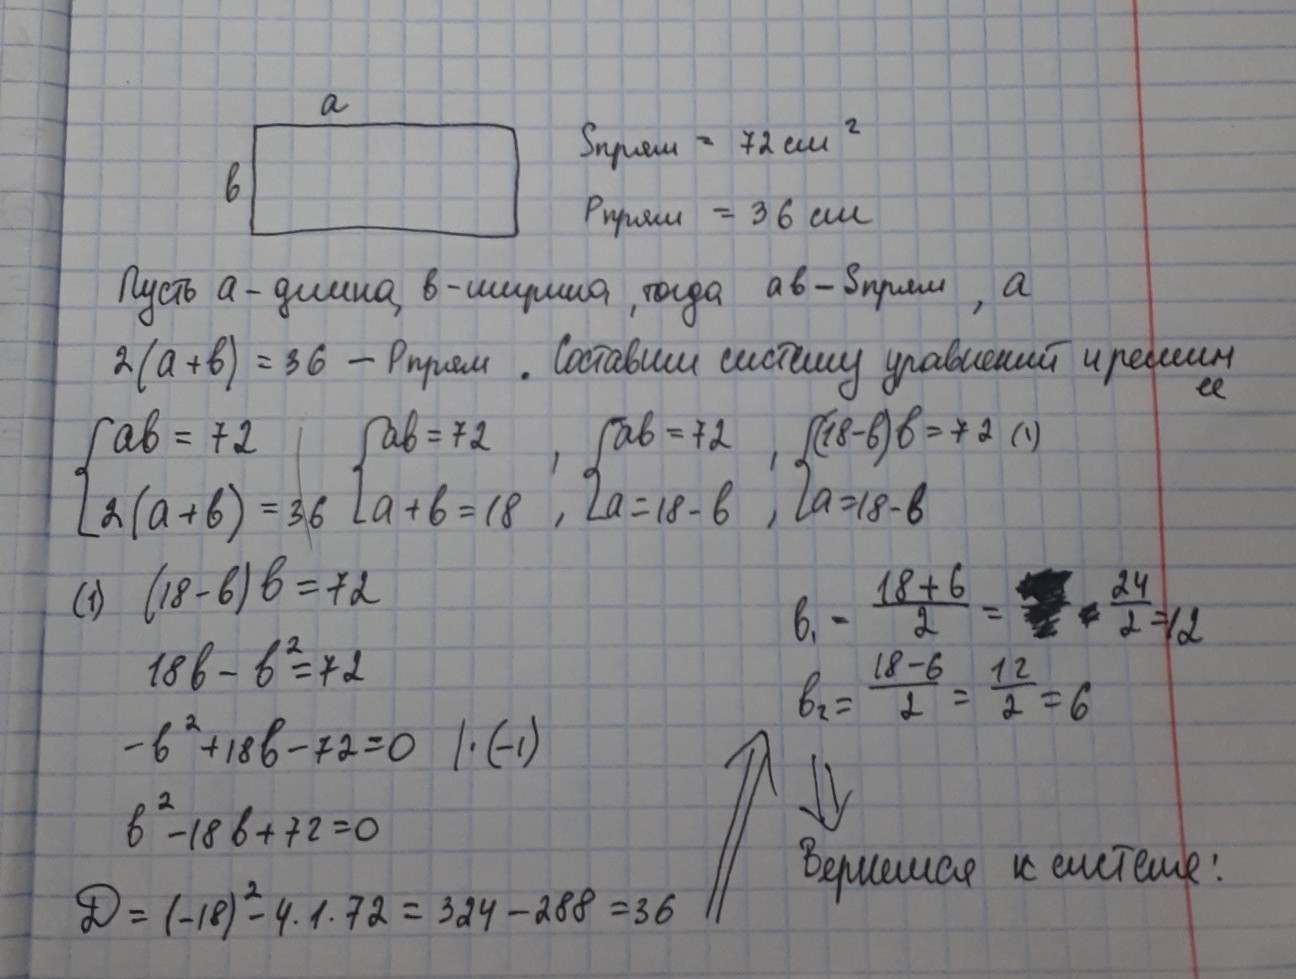 a
в
Sпрям = 72 см²
Pпрям = 36 см
Пусть a - длина, в - ширина, тогда aв - Sпрям, а
2(a+в) = 36 - Pпрям. Составим систему уравнений и решим
ее
{aв = 72 {aв = 72 , {aв = 72 , {(18-в)в = 72 (1)
{2(a+в) = 36 {a+в = 18 , {a = 18-в , {a = 18-в
(1) (18-в)в = 72
18в - в² = 72
-в² + 18в - 72 = 0 |·(-1)
в² - 18в + 72 = 0
D = (-18)² - 4·1·72 = 324 - 288 = 36
в₁ = (18+6)/2 = 24/2 = 12
в₂ = (18-6)/2 = 12/2 = 6
Вернемся к системе: